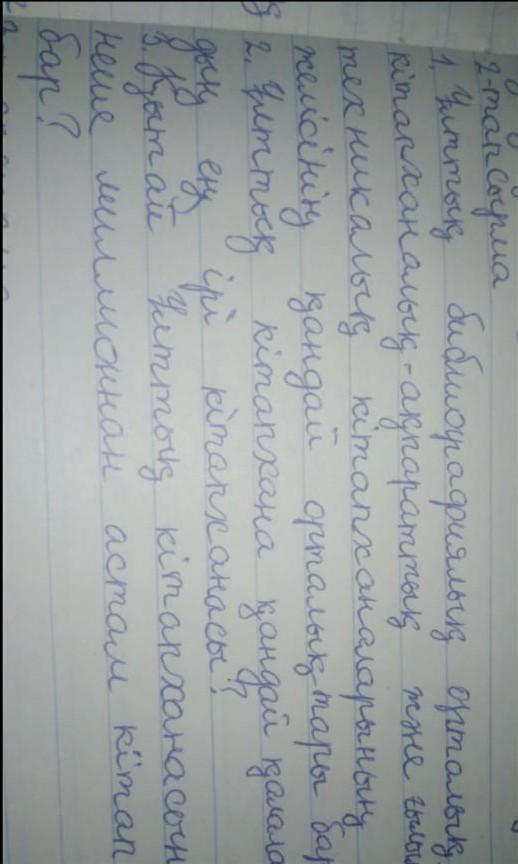 2-тапсырма
1. Ұлттық библиографиялық орталық
кітапханалық-ақпараттық және ғылым
техникалық кітапханаларының
желісінің қандай орталықтары бар
2. Ұлттық кітапхана қандай қалала
дың ең ірі кітапханасы?
3. Қытай Ұлттық кітапханасын
неше миллионнан астам кітап
бар?